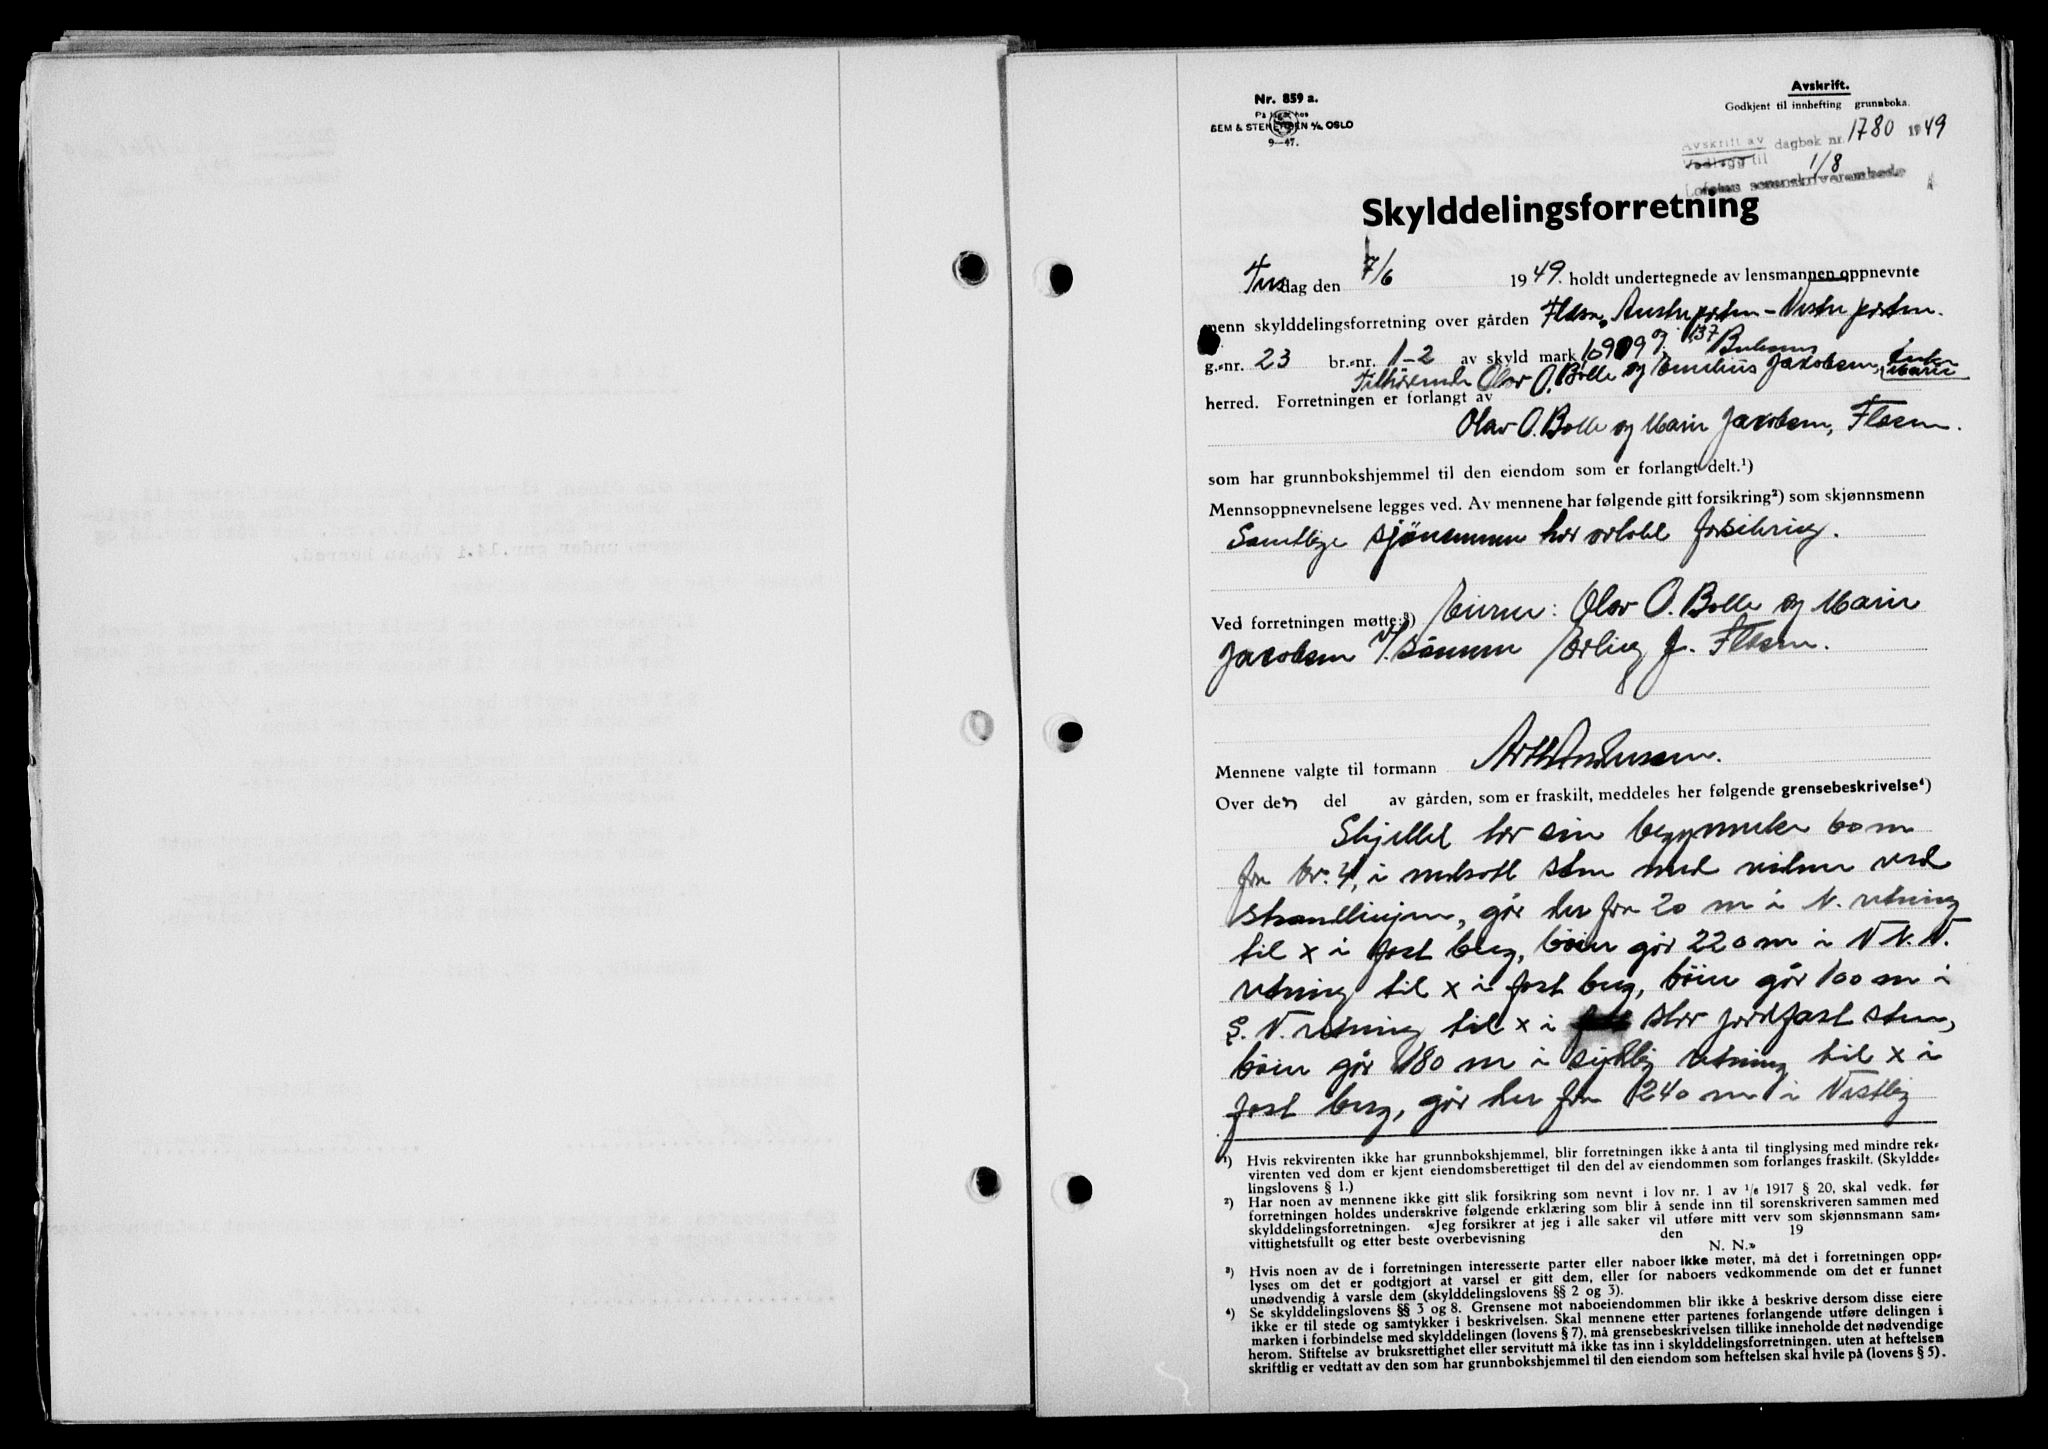 Nr. 859 a.
På lager hos
SEM & STENERSEN A/S OSLO
9-47.
Avskrift.
Godkjent til innhefting grunnboka.
Avskrift av dagbok nr. 1780 1949
Vedlegg til 1/8
Lofoten sorenskriverembede
Skylddelingsforretning
Tirsdag den 7/6 1949. holdt undertegnede av lensmannen oppnevnte
menn skylddelingsforretning over gården Flæsa, Austre jorten - Vestre jorten.
g.-nr. 23 br.-nr. 1-2 av skyld mark og 137
Tilhørende Olav O. Bolle og Emilius Jakobsen, enke Marie
herred. Forretningen er forlangt av
Olav O. Bolle og Marie Jakobsen, Flæsen.
som har grunnbokshjemmel til den eiendom som er forlangt delt.¹)
Mennsoppnevnelsene legges ved. Av mennene har følgende gitt forsikring²) som skjønnsmenn
Samtlige sjønsmenn har avlakt forsikring.
Ved forretningen møtte:³) Eierne: Olav O. Bolle og Marie
Jacobsen v/ Sønnen Erling J. Flæsen.
Mennene valgte til formann
Over den del av gården, som er fraskilt, meddeles her følgende grensebeskrivelse⁴)
Skjellet tar sin begynnelse 60 m
fra br. 4, i nedsatt sten med vidner ved
strandlinjen, går der fra 20 m i N. retning
til x i fast berg, bøier går 220 m i V N. V.
retning til x i fast berg, bøier går 100 m i
S. V. retning til x i stor jordfast sten,
bøier går 180 m i sydlig retning til x i
fast berg, går der fra 240 m i Vestlig
¹) Hvis rekvirenten ikke har grunnbokshjemmel, blir forretningen ikke å anta til tinglysing med mindre rek-
virenten ved dom er kjent eiendomsberettiget til den del av eiendommen som forlanges fraskilt. (Skyldde-
lingslovens § 1.)
²) Har noen av mennene ikke gitt slik forsikring som nevnt i lov nr. 1 av 1/6 1917 § 20, skal vedk. før
forretningen holdes underskrive følgende erklæring som blir å sende inn til sorenskriveren sammen med
skylddelingsforretningen. «Jeg forsikrer at jeg i alle saker vil utføre mitt verv som skjønnsmann sam-
vittighetsfullt og etter beste overbevisning den 19
N. N.»
³) Hvis noen av de i forretningen interesserte parter eller naboer ikke møter, må det i forretningen opp-
lyses om det er godtgjort at varsel er gitt dem, eller for naboers vedkommende om det er funnet
unødvendig å varsle dem (skylddelingslovens §§ 2 og 3).
⁴) Se skylddelingslovens §§ 3 og 8. Grensene mot naboeiendommen blir ikke å beskrive dersom disse eiere
ikke er til stede og samtykker i beskrivelsen. Skal mennene etter partenes forlangende utføre delingen i
marken i forbindelse med skylddelingen (lovens § 7), må grensebeskrivelsen tillike inneholde det nødvendige
herom. Stiftelse av bruksrettighet eller servitutt må ikke tas inn i skylddelingsforretningen. uten at heftelsen
skriftlig er vedtatt av den som har grunnbokshjemmel til den eiendom som heftelsen skal hvile på (lovens § 5).